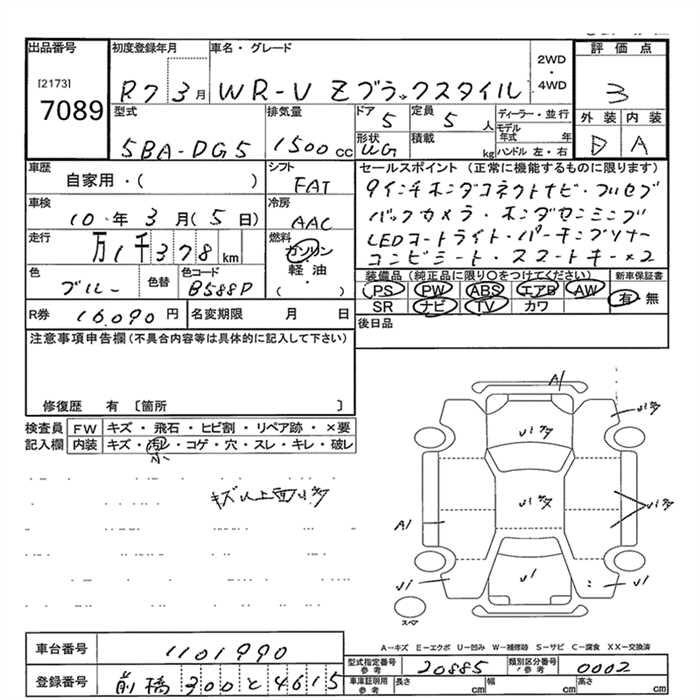 出品番号 初度登録年月 車名・グレード 評価点
[2173] 2WD・4WD
7089 R7 3月 WR-V Zブラックスタイル 3
型式 排気量 ドア 定員 ディーラー・並行 外装 内装
5BA-DG5 1500cc 5 5人 モデル年式 年 D A
形状 積載 kg ハンドル 左・右
WG
車歴 シフト セールスポイント (正常に機能するものに限ります)
自家用・( ) FAT 9インチホンダコネクトナビ・フルセグ
車検 冷房 バックカメラ・ホンダセンシング
10年3月(5日) AAC LEDヘッドライト・パーキングソナー
走行 燃料 コンビシート・スマートキー×2
万1千378km ガソリン・軽油 ( )
色 色替 色コード 装備品(純正品に限り○をつけてください) 新車保証書
ブルー B588P PS PW ABS エアB AW 有・無
SR ナビ TV カワ
R券 16,090円 名変期限 月 日 後日品
注意事項申告欄(不具合内容等は具体的に記入して下さい)
修復歴 有 〔箇所 〕
検査員 FW キズ・飛石・ヒビ割・リペア跡・×要
記入欄 内装 キズ・汚レ・コゲ・穴・スレ・キレ・破レ
小
キズ以上面
A1
A1
スペア
A-キズ E-エクボ U-凹み W-補修跡 S-サビ C-腐食 XX-交換済
車台番号 1101990
型式指定番号 参考 20885 類別区分番号 参考 0002
登録番号 前橋 300 と 4615
車庫証明用 参考 長さ cm 幅 cm 高さ cm